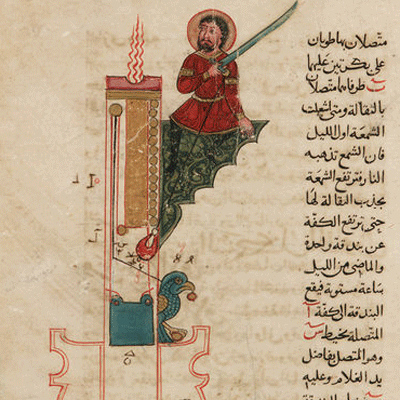 متصلان بها
على بكرتين عليهما
طرفاهما متصلان
بالثقالة ومتى اشعلت
الشمعة اول الليل
فان الشمع تذهبه
النار فترتفع الشمعة
بجذب الثقالة لها
حتى ترتفع الكفة
عن بندقة واحدة
والماضي من الليل
ساعة مستوية فيقع
البندقة الكفة
المتصلة بخيط
وهو المتصل بفاضل
يد الغلام وعليه